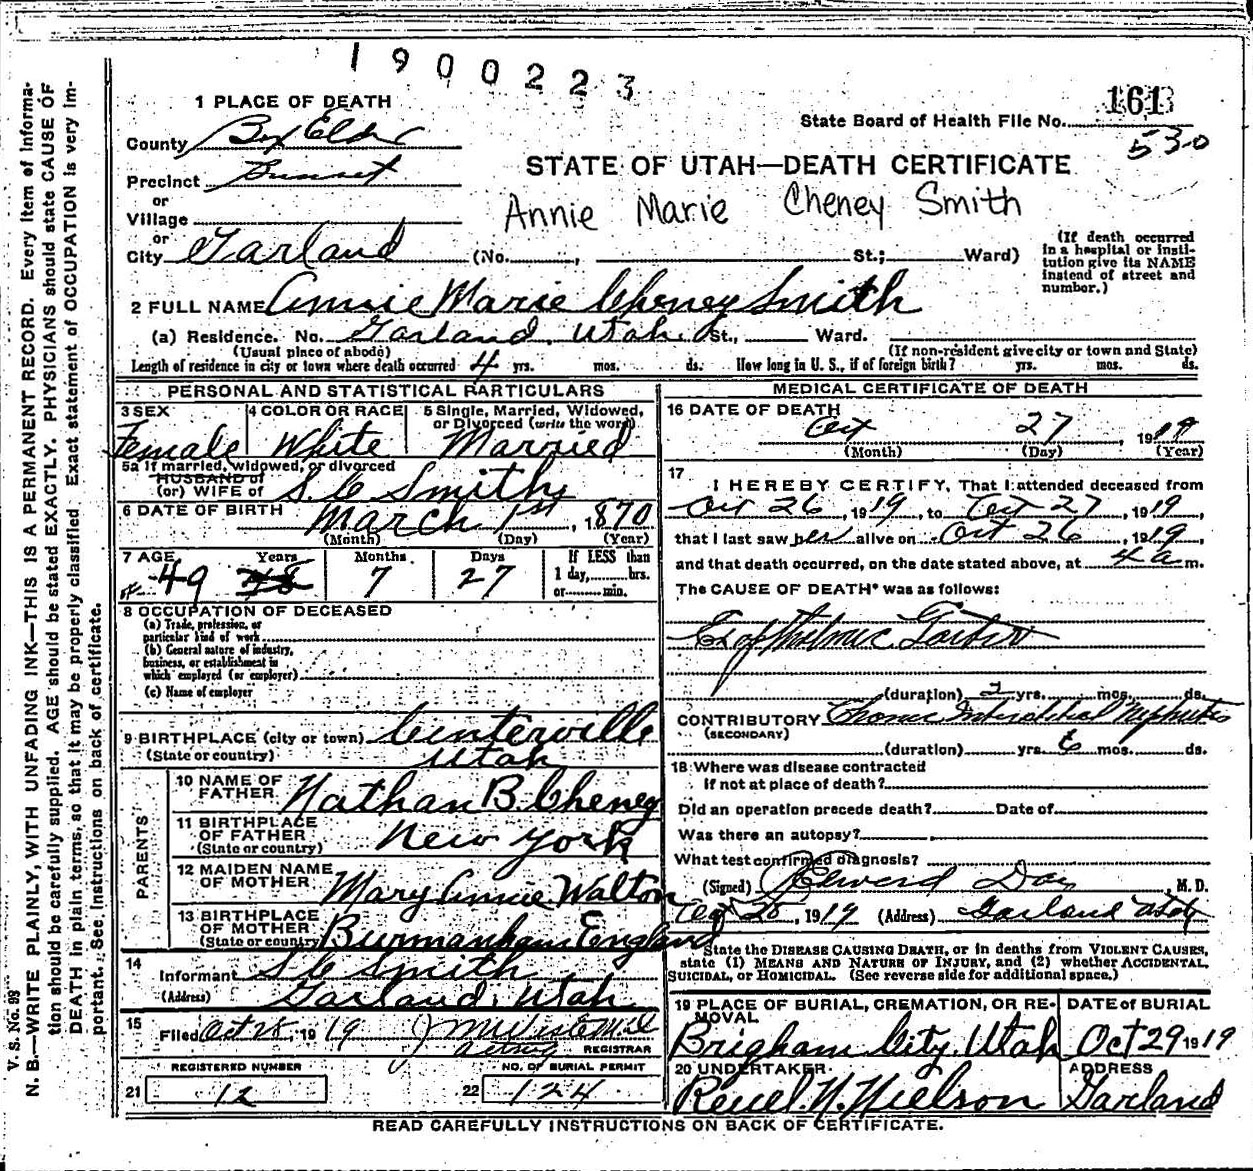 1900223
1 PLACE OF DEATH
161
State Board of Health File No.
530
County Box Elder
STATE OF UTAH—DEATH CERTIFICATE
Precinct Sunset
or
Village
Annie Marie Cheney Smith
or
City Garland (No. , St.; Ward)
(If death occurred in a hospital or institution give its NAME instead of street and number.)
2 FULL NAME Annie Marie Cheney Smith
(a) Residence. No. Garland, Utah. St., Ward.
(Usual place of abode) (If non-resident give city or town and State)
Length of residence in city or town where death occurred 4 yrs. mos. ds. How long in U. S., if of foreign birth? yrs. mos. ds.
PERSONAL AND STATISTICAL PARTICULARS
3 SEX 4 COLOR OR RACE 5 Single, Married, Widowed,
or Divorced (write the word)
Female White Married
5a If married, widowed, or divorced
HUSBAND of
(or) WIFE of S. C Smith
6 DATE OF BIRTH March 1st, 1870
(Month) (Day) (Year)
7 AGE Years Months Days If LESS than
49 48 7 27 1 day, hrs.
or min.
8 OCCUPATION OF DECEASED
(a) Trade, profession, or
particular kind of work
(b) General nature of industry,
business, or establishment in
which employed (or employer)
(c) Name of employer
9 BIRTHPLACE (city or town) Centerville
(State or country) Utah
PARENTS
10 NAME OF
FATHER Nathan B. Cheney
11 BIRTHPLACE
OF FATHER New York
(State or country)
12 MAIDEN NAME
OF MOTHER Mary Annie Walton
13 BIRTHPLACE
OF MOTHER
(State or country) Burmanham England
14
Informant S C Smith
(Address) Garland, Utah
15
Filed Oct 28, 1919
acting REGISTRAR
REGISTERED NUMBER NO. OF BURIAL PERMIT
21 12 22 124
MEDICAL CERTIFICATE OF DEATH
16 DATE OF DEATH
Oct 27, 1919
(Month) (Day) (Year)
17
I HEREBY CERTIFY, That I attended deceased from
Oct 26, 1919, to Oct 27, 1919,
that I last saw her alive on Oct 26, 1919,
and that death occurred, on the date stated above, at 4 a m.
The CAUSE OF DEATH* was as follows:
Exopthalmic Goiter
(duration) 2 yrs. mos. ds.
CONTRIBUTORY Chronic Interstitial Nephritis
(SECONDARY)
(duration) yrs. 6 mos. ds.
18 Where was disease contracted
if not at place of death?
Did an operation precede death? Date of
Was there an autopsy?
What test confirmed diagnosis?
(Signed) Edward Day, M. D.
28, 1919 (Address) Garland Utah
State the DISEASE CAUSING DEATH, or in deaths from VIOLENT CAUSES,
state (1) MEANS AND NATURE OF INJURY, and (2) whether ACCIDENTAL,
SUICIDAL, or HOMICIDAL. (See reverse side for additional space.)
19 PLACE OF BURIAL, CREMATION, OR RE- DATE of BURIAL
MOVAL
Brigham City Utah Oct 29 1919
20 UNDERTAKER ADDRESS
Reuel N. Nielson Garland
READ CAREFULLY INSTRUCTIONS ON BACK OF CERTIFICATE.
V. S. No. 98
N. B.—WRITE PLAINLY, WITH UNFADING INK—THIS IS A PERMANENT RECORD. Every item of informa-
tion should be carefully supplied. AGE should be stated EXACTLY. PHYSICIANS should state CAUSE OF
DEATH in plain terms, so that it may be properly classified. Exact statement of OCCUPATION is very im-
portant. See instructions on back of certificate.